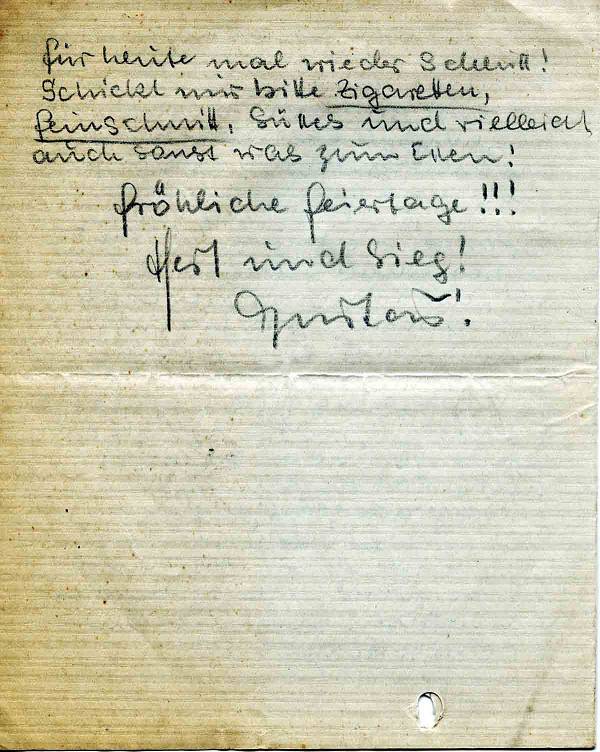 für heute mal wieder Schluß!
Schickt mir bitte Zigaretten,
Feinschnitt, Süßes und vielleicht
auch sonst was zum Essen!
Fröhliche Feiertage!!!
und Sieg!
Gustav!